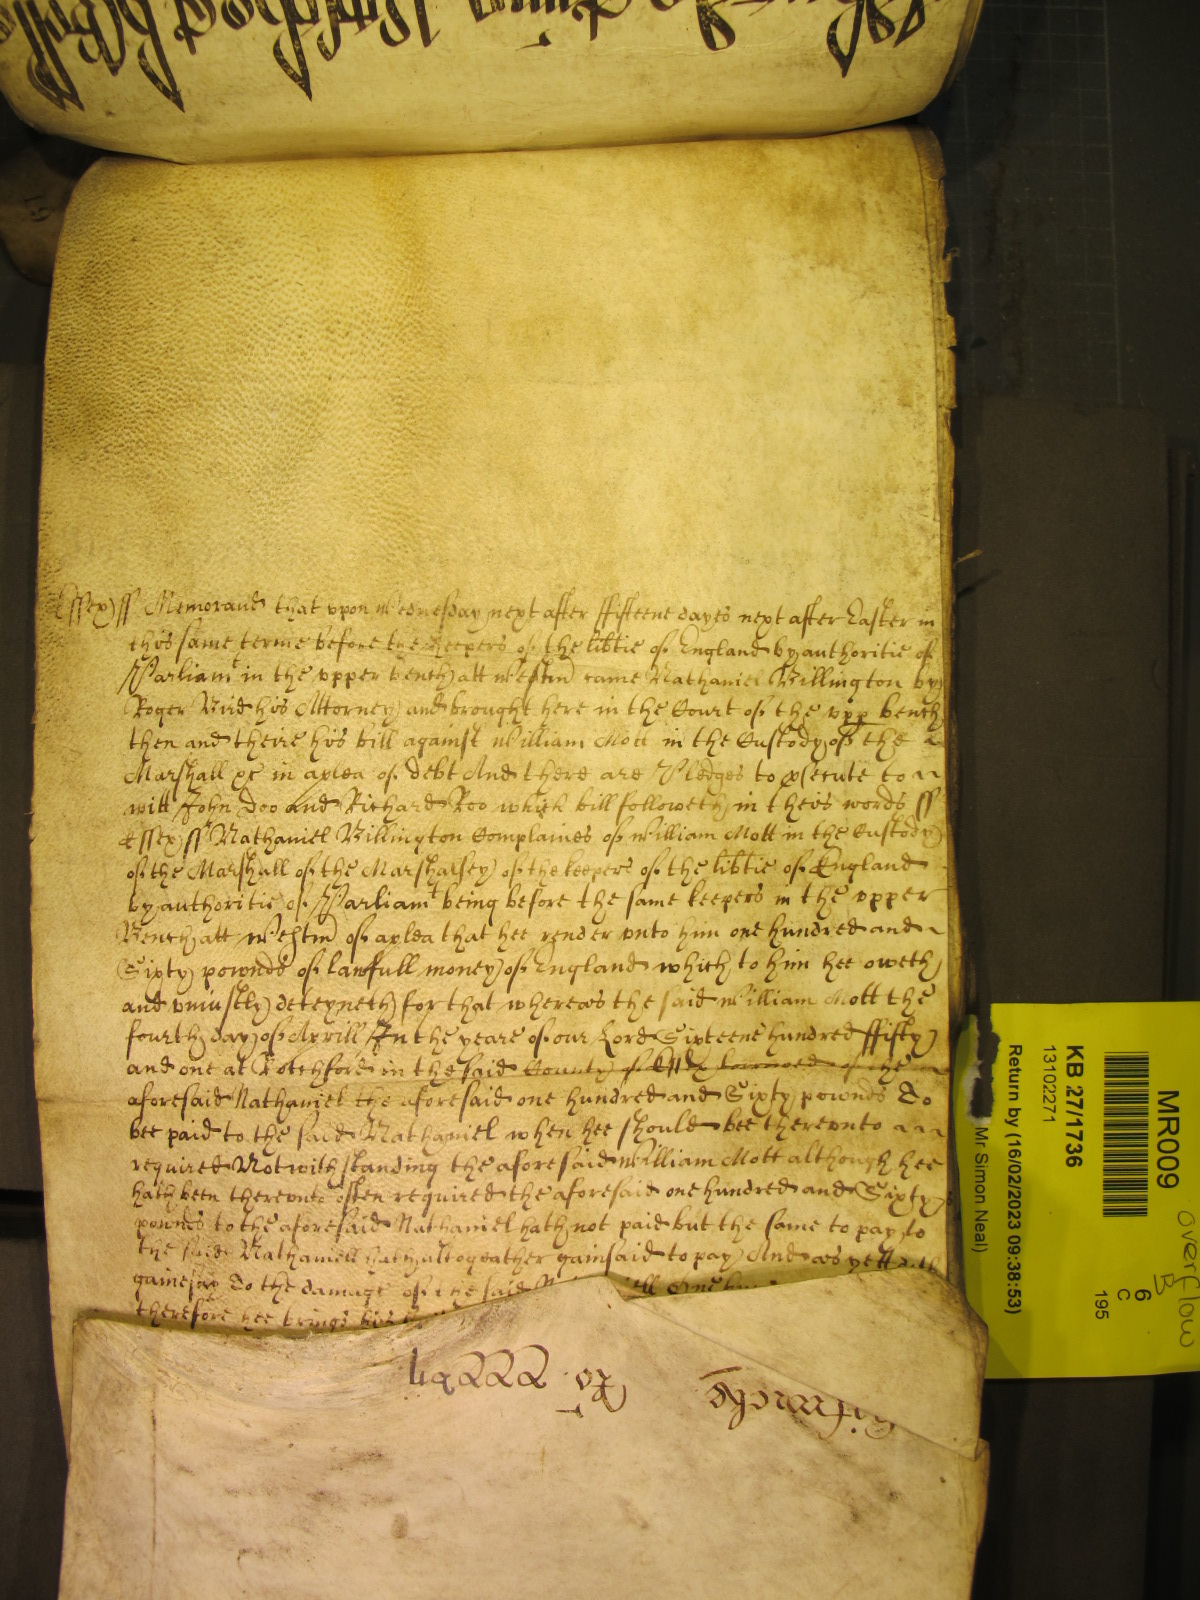 Essex) ss Memorand that upon Wednesday next after ffifteene dayes next after Easter in
this same terme before the keepers of the lib'tie of England by authoritie of
Parliamt in the upper bench att Westm) came Nathaniel Billington by
Roger Bird his Attorney and brought here in the Court of the upp bench
then and theire his bill against William Mott in the Custody of the
Marshall &c in a plea of debt And there are Pledges to p'secute to
witt John Doo and Richard Roo which bill followeth in theis words ss
Essex) ss Nathaniel Billington Complaines of William Mott in the Custody
of the Marshall of the Marshalsey of the keepers of the lib'tie of England
by authoritie of Parliamt being before the same keepers in the upper
Bench att Westm) of a plea that hee render unto him one hundred and
Sixty pownds of lawfull money of England which to him hee oweth
and uniustly deteyneth for that whereas the said William Mott the
fourth day of Aprill In the yeare of our Lord Sixteene hundred ffifty
and one at Rotchford in the said County of Essex borrowed of the
aforesaid Nathaniel the aforesaid one hundred and Sixty pownds To
bee paid to the said Nathaniel when hee should bee thereunto
required Notwithstanding the aforesaid William Mott although hee
hath been thereunto often required the aforesaid one hundred and Sixty
pownds to the aforesaid Nathaniel hath not paid but the same to pay to
the said Nathaniell hath altogeather gainsaid to pay And as yett doth
gainesay To the damage of the said
therefore hee brings his
MR009
KB 27/1736
13102271
Return by (16/02/2023 09:38:53)
Mr Simon Neal)
6
C
195
overflow
B